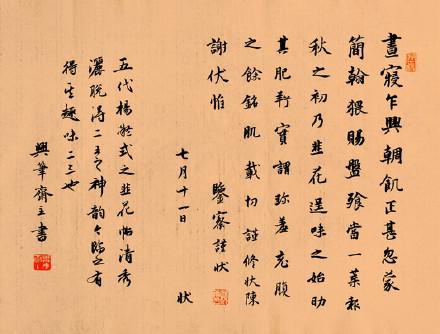 晝寢乍興輖飢正甚忽蒙
簡翰猥賜盤飧當一葉報
秋之初乃韭花逞味之始助
其肥羜實謂珍羞充腹
之餘銘肌載切謹修狀陳
謝伏惟
鑒察謹狀
七月十一日 狀
五代楊凝式之韭花帖清秀
灑脫得二王之神韵今臨之有
得其趣味二三也
興筆齋主書